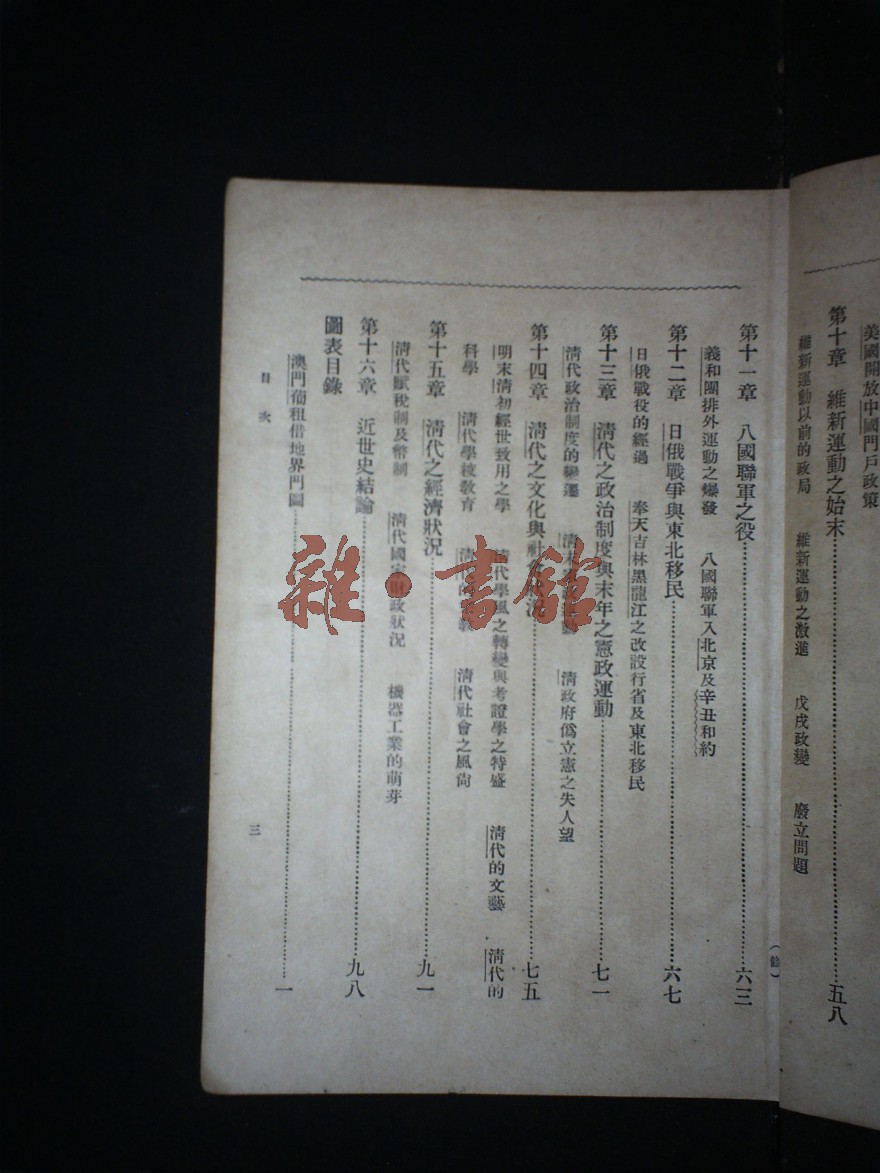 美國開放中國門戶政策
第十章　維新運動之始末……五八
維新運動以前的政局　維新運動之激進　戊戌政變　廢立問題
第十一章　八國聯軍之役……六三
義和團排外運動之爆發　八國聯軍入北京及辛丑和約
第十二章　日俄戰爭與東北移民……六七
日俄戰役的經過　奉天吉林黑龍江之改設行省及東北移民
第十三章　清代之政治制度與末年之憲政運動……七一
清代政治制度的變遷　清末　清政府僞立憲之失人望
第十四章　清代之文化與社會狀況……七五
明末清初經世致用之學　清代學風之轉變與考證學之特盛　清代的文藝　清代的
科學　清代學校敎育　清代的　清代社會之風尙
第十五章　清代之經濟狀況……九一
清代賦稅制及幣制　清代國家財政狀況　機器工業的萌芽
第十六章　近世史結論……九八
圖表目錄
澳門葡租借地界門圖……一
目次
三
雜·書館